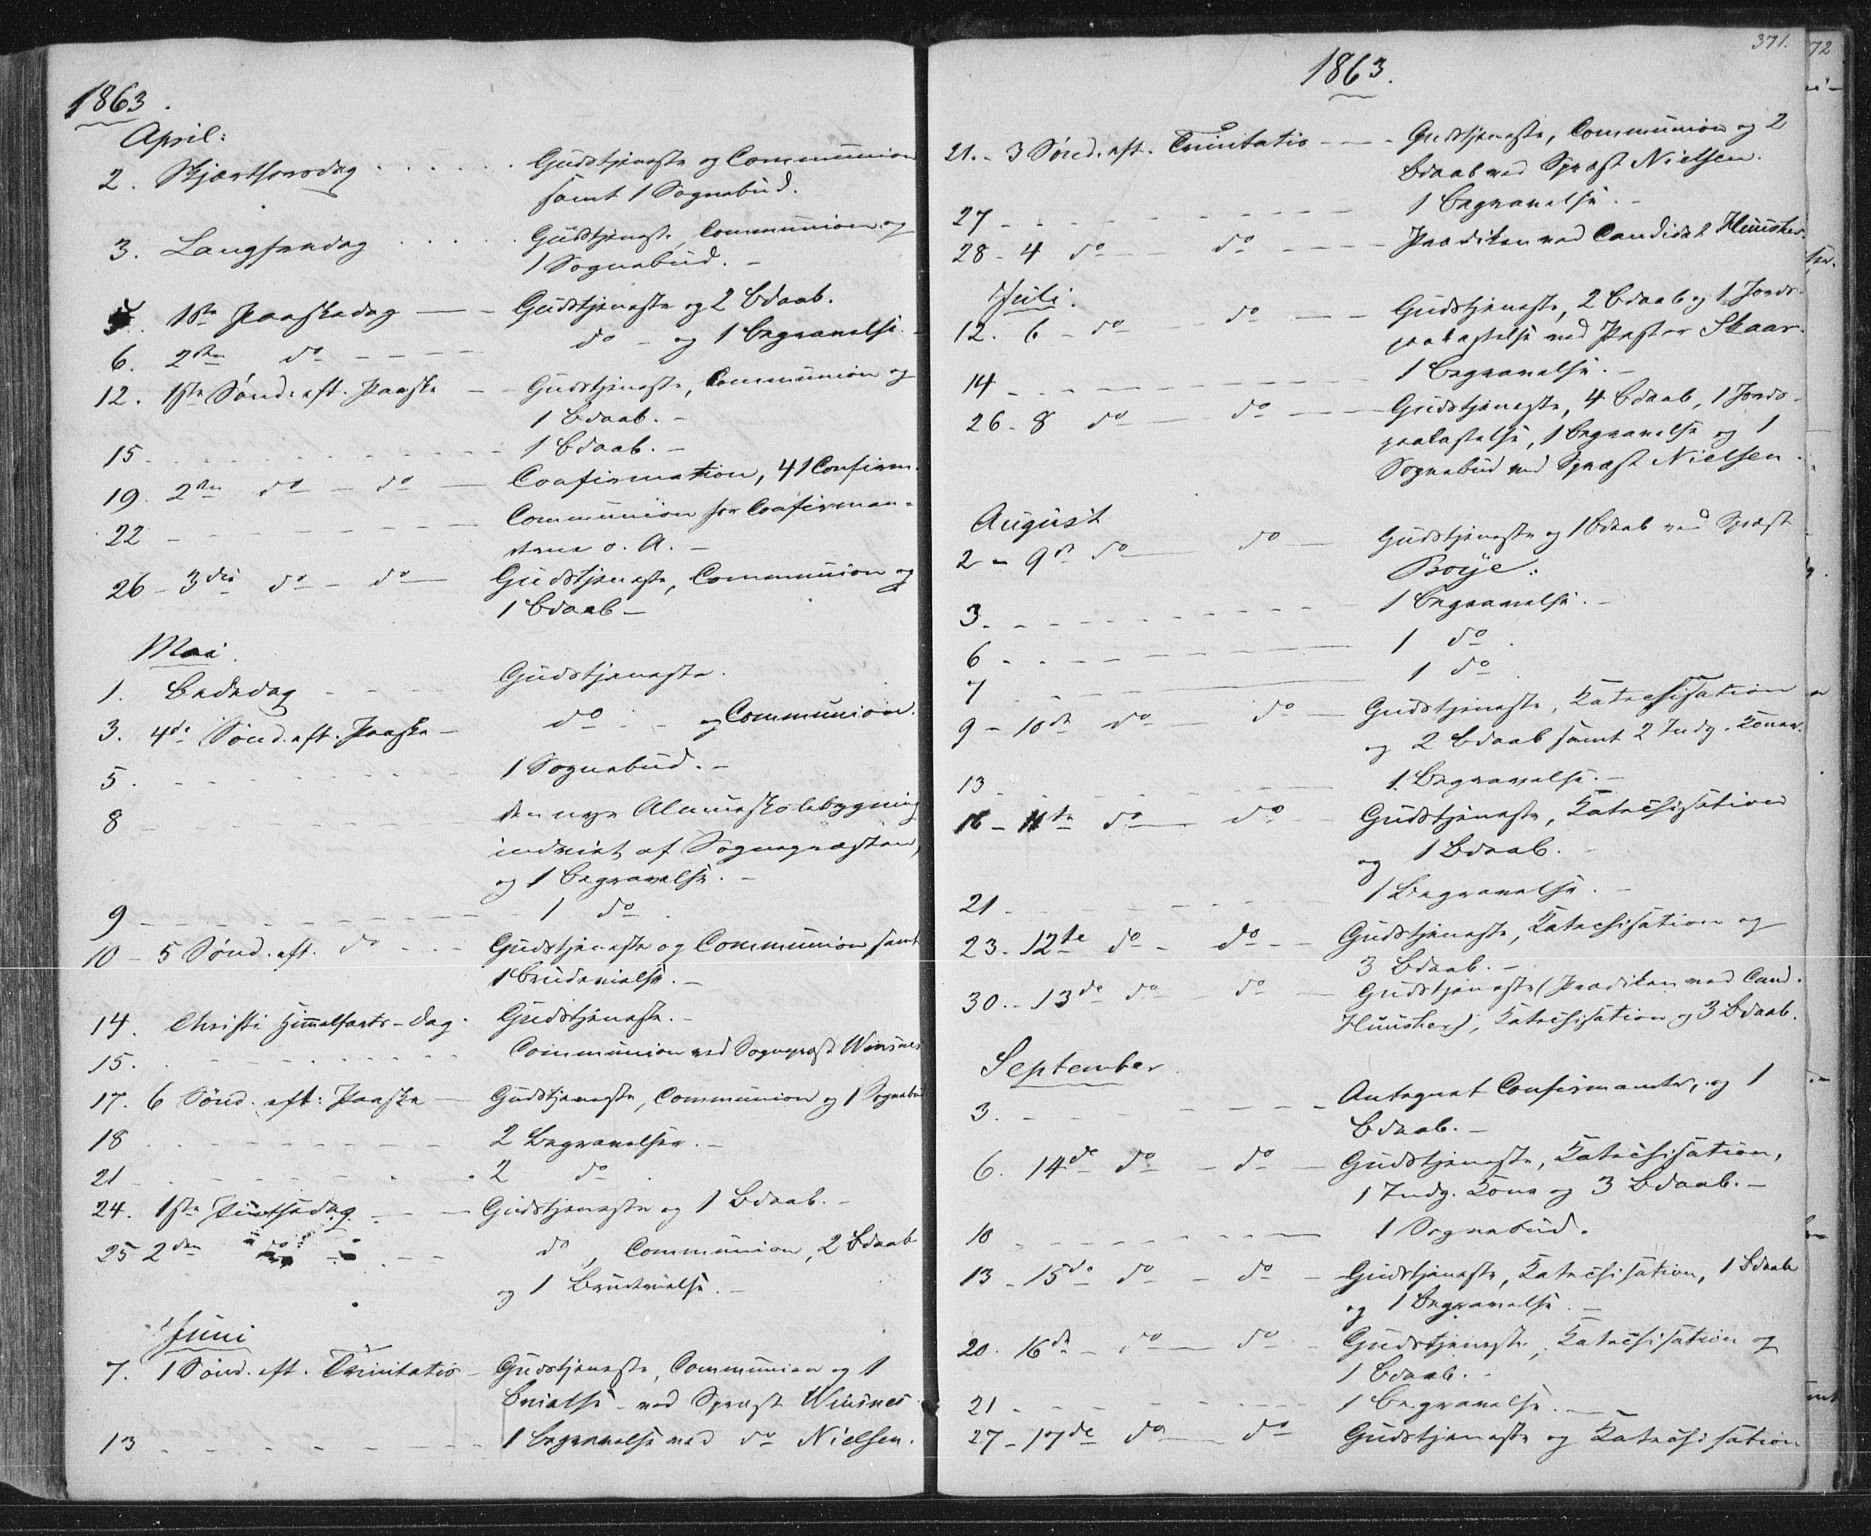 1863.
April:
2. Skjærthorsdag . . . . . . Gudstjeneste og Communion
samt 1 Sognebud.
3. Langfredag . . . . . Gudstjeneste, Communion og
1 Sognebud. -
5. 1ste Paaskedag - - Gudstjeneste og 2 Bdaab.
6. 2den do - - - - do - og 1 Begravelse. -
12. 1ste Sønd. eft. Paaske - - Gudstjeneste, Communion og
1 Bdaab. -
15 - - - - - - 1 Bdaab. -
19. 2den do - do - Confirmation, 41 Confirm.
22 - - - - - - Communion for Confirman-
derne o. A. -
26 - 3die do - do - Gudstjeneste, Communion og
1 Bdaab -
Mai.
1. Bededag - - - - Gudstjeneste.
3. 4de Sønd. eft. Paaske - do - og Communion.
5. - - - - - - 1 Sognebud. -
8 - - - - - - den nye Almueskolebygning
indviet af Sognepræsten,
og 1 Begravelse. -
9 - - - - - - 1 do.
10 - 5 Sønd. eft. do - - - Gudstjeneste og Communion samt
1 Brudevielse. -
14. Christi Himmelfarts-Dag. Gudstjeneste. -
15. - - - - - - Communion ved Sognepræst Winsnes
17. 6 Sønd. eft: Paaske - Gudstjeneste, Communion og 1 Sognebud
18 - - - - - - 2 Begravelser. -
21 - - - - - - 2 do.
24. 1ste Pintsedag. - - - Gudstjeneste og 1 Bdaab. -
25 2den do - - - do, Communion, 2 Bdaab
og 1 Brudevielse. -
Juni
7. 1 Sønd. eft. Trinitatis - Gudstjeneste, Communion og 1
Bvielse - ved Spræst Winsnes.
13 - - - - - - 1 Begravelse ved do Nielsen.
371.
72
1863.
21. - 3 Sønd. eft. Trinitatis - - - Gudstjeneste, Communion og 2
Bdaab ved Spræst Nielsen.
27 - - - - - - 1 Begravelse. -
28 - 4 do - - do - - - - Prædiken ved Candidat
Juli.
12. 6 - do - do - - - Gudstjeneste, 2 Bdaab og 1 Jords-
paakastelse ved Pastor Skaar.
14 - - - - - - 1 Begravelse. -
26 - 8 do - do - - - Gudstjeneste, 4 Bdaab, 1 Jords-
paakastelse, 1 Begravelse og 1
Sognebud ved Spræst Nielsen.
August
2 - 9de do - do - Gudstjeneste og 1 Bdaab ved Spræst
Boije.
3. - - - - - - 1 Begravelse. -
6 - - - - - - 1 do.
7 - - - - - - 1 do.
9 - 10de do - do - Gudstjeneste, Katechisation
og 2 Bdaab samt 2 Indg. Koner.
13 - - - - - - 1 Begravelse. -
16 - 11te do - do - - Gudstjeneste, Katechisation
og 1 Bdaab. -
21 - - - - - - 1 Begravelse. -
23. - 12te do - do - - Gudstjeneste, Katechisation og
3 Bdaab. -
30. - 13de do - do - Gudstjeneste (Prædiken ved Cand.
Katechisation og 3 Bdaab.
September.
3. - - - - - - Antegnet Confirmanter, og 1
Bdaab. -
6. 14de do - do - Gudstjeneste, Katechisation,
1 Indg. Kone og 3 Bdaab. -
10 - - - - - - 1 Sognebud.
13 - 15de do - do - Gudstjeneste, Katechisation, 1 Bdaab
og 1 Begravelse. -
20. 16de - do - do - Gudstjeneste, Katechisation og
1 Bdaab. -
21 - - - - - - 1 Begravelse. -
27 - 17de do - do Gudstjeneste og Katechisation